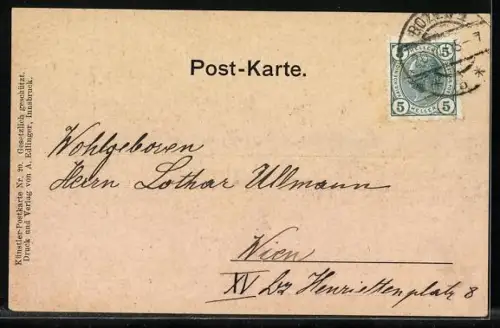 Post-Karte.
BOZEN
5 5
5 5
HELLER
Wohlgeboren
Herrn Lothar Ullmann
Wien
XV Bz Henriettenplatz 8
Künstler-Postkarte Nr. 20. Gesetzlich geschützt.
Druck und Verlag von A. Edlinger, Innsbruck.